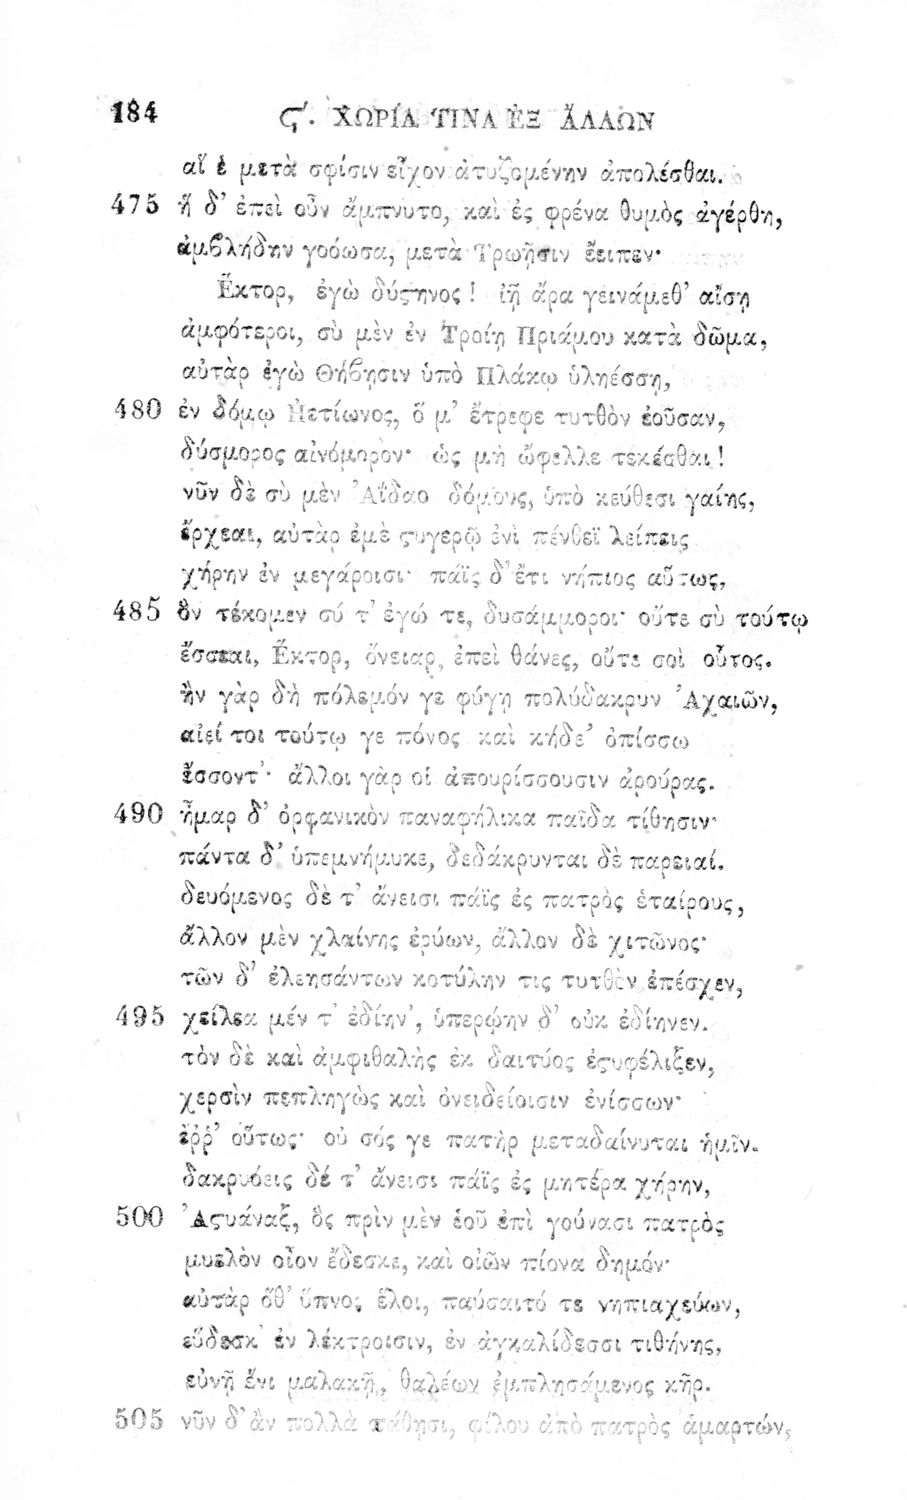 184 ϛ'. ΧΩΡΊΑ ΤΙΝΑ ἘΞ ἌΛΛΩΝ
αἵ ἑ μετὰ σφίσιν εἶχον ἀτυζομένην ἀπολέσθαι.
475 ἡ δ' ἐπεὶ οὖν ἄμπνυτο, καὶ ἐς φρένα θυμὸς ἀγέρθη,
ἀμϐλήδην γοόωσα, μετὰ Τρωῇσιν ἔειπεν·
Ἕκτορ, ἐγὼ δύϛηνος! ἰῇ ἄρα γεινάμεθ' αἴσῃ
ἀμφότεροι, σὺ μὲν ἐν Τροίῃ Πριάμου κατὰ δῶμα,
αὐτὰρ ἐγὼ Θήϐῃσιν ὑπὸ Πλάκῳ ὑληέσσῃ,
480 ἐν δόμῳ Ἠετίωνος, ὅ μ' ἔτρεφε τυτθὸν ἐοῦσαν,
δύσμορος αἰνόμορον· ὡς μὴ ὤφελλε τεκέσθαι!
νῦν δὲ σὺ μὲν Ἀΐδαο δόμους, ὑπὸ κεύθεσι γαίης,
ἔρχεαι, αὐτὰρ ἐμὲ ϛυγερῷ ἐνὶ πένθεϊ λείπεις
χήρην ἐν μεγάροισι· πάϊς δ' ἔτι νήπιος αὔτως,
485 ὃν τέκομεν σύ τ' ἐγώ τε, δυσάμμοροι· οὔτε σὺ τούτῳ
ἔσσεαι, Ἕκτορ, ὄνειαρ, ἐπεὶ θάνες, οὔτε σοὶ οὗτος.
ἢν γὰρ δὴ πόλεμόν γε φύγῃ πολύδακρυν Ἀχαιῶν,
αἰεί τοι τούτῳ γε πόνος καὶ κήδε' ὀπίσσω
ἔσσοντ'· ἄλλοι γὰρ οἱ ἀπουρίσσουσιν ἀρούρας.
490 ἦμαρ δ' ὀρφανικὸν παναφήλικα παῖδα τίθησιν·
πάντα δ' ὑπεμνήμυκε, δεδάκρυνται δὲ παρειαί.
δευόμενος δέ τ' ἄνεισι πάϊς ἐς πατρὸς ἑταίρους,
ἄλλον μὲν χλαίνης ἐρύων, ἄλλον δὲ χιτῶνος·
τῶν δ' ἐλεησάντων κοτύλην τις τυτθὸν ἐπέσχεν,
495 χείλεα μέν τ' ἐδίην', ὑπερῴην δ' οὐκ ἐδίηνεν.
τὸν δὲ καὶ ἀμφιθαλὴς ἐκ δαιτύος ἐϛυφέλιξεν,
χερσὶν πεπληγὼς καὶ ὀνειδείοισιν ἐνίσσων·
ἔῤῥ' οὕτως· οὐ σός γε πατὴρ μεταδαίνυται ἡμῖν.
δακρυόεις δέ τ' ἄνεισι πάϊς ἐς μητέρα χήρην,
500 Ἀϛυάναξ, ὃς πρὶν μὲν ἑοῦ ἐπὶ γούνασι πατρὸς
μυελὸν οἶον ἔδεσκε, καὶ οἰῶν πίονα δημόν·
αὐτὰρ ὅθ' ὕπνος ἕλοι, παύσαιτό τε νηπιαχεύων,
εὕδεσκ' ἐν λέκτροισιν, ἐν ἀγκαλίδεσσι τιθήνης,
εὐνῇ ἔνι μαλακῇ, θαλέων ἐμπλησάμενος κῆρ.
505 νῦν δ' ἂν πολλὰ πάθῃσι, φίλου ἀπὸ πατρὸς ἁμαρτών,